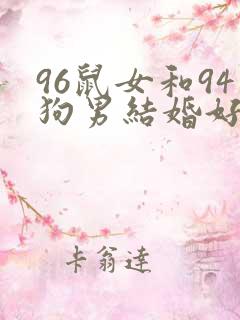 96鼠女和94
狗男結婚好
卡翁達